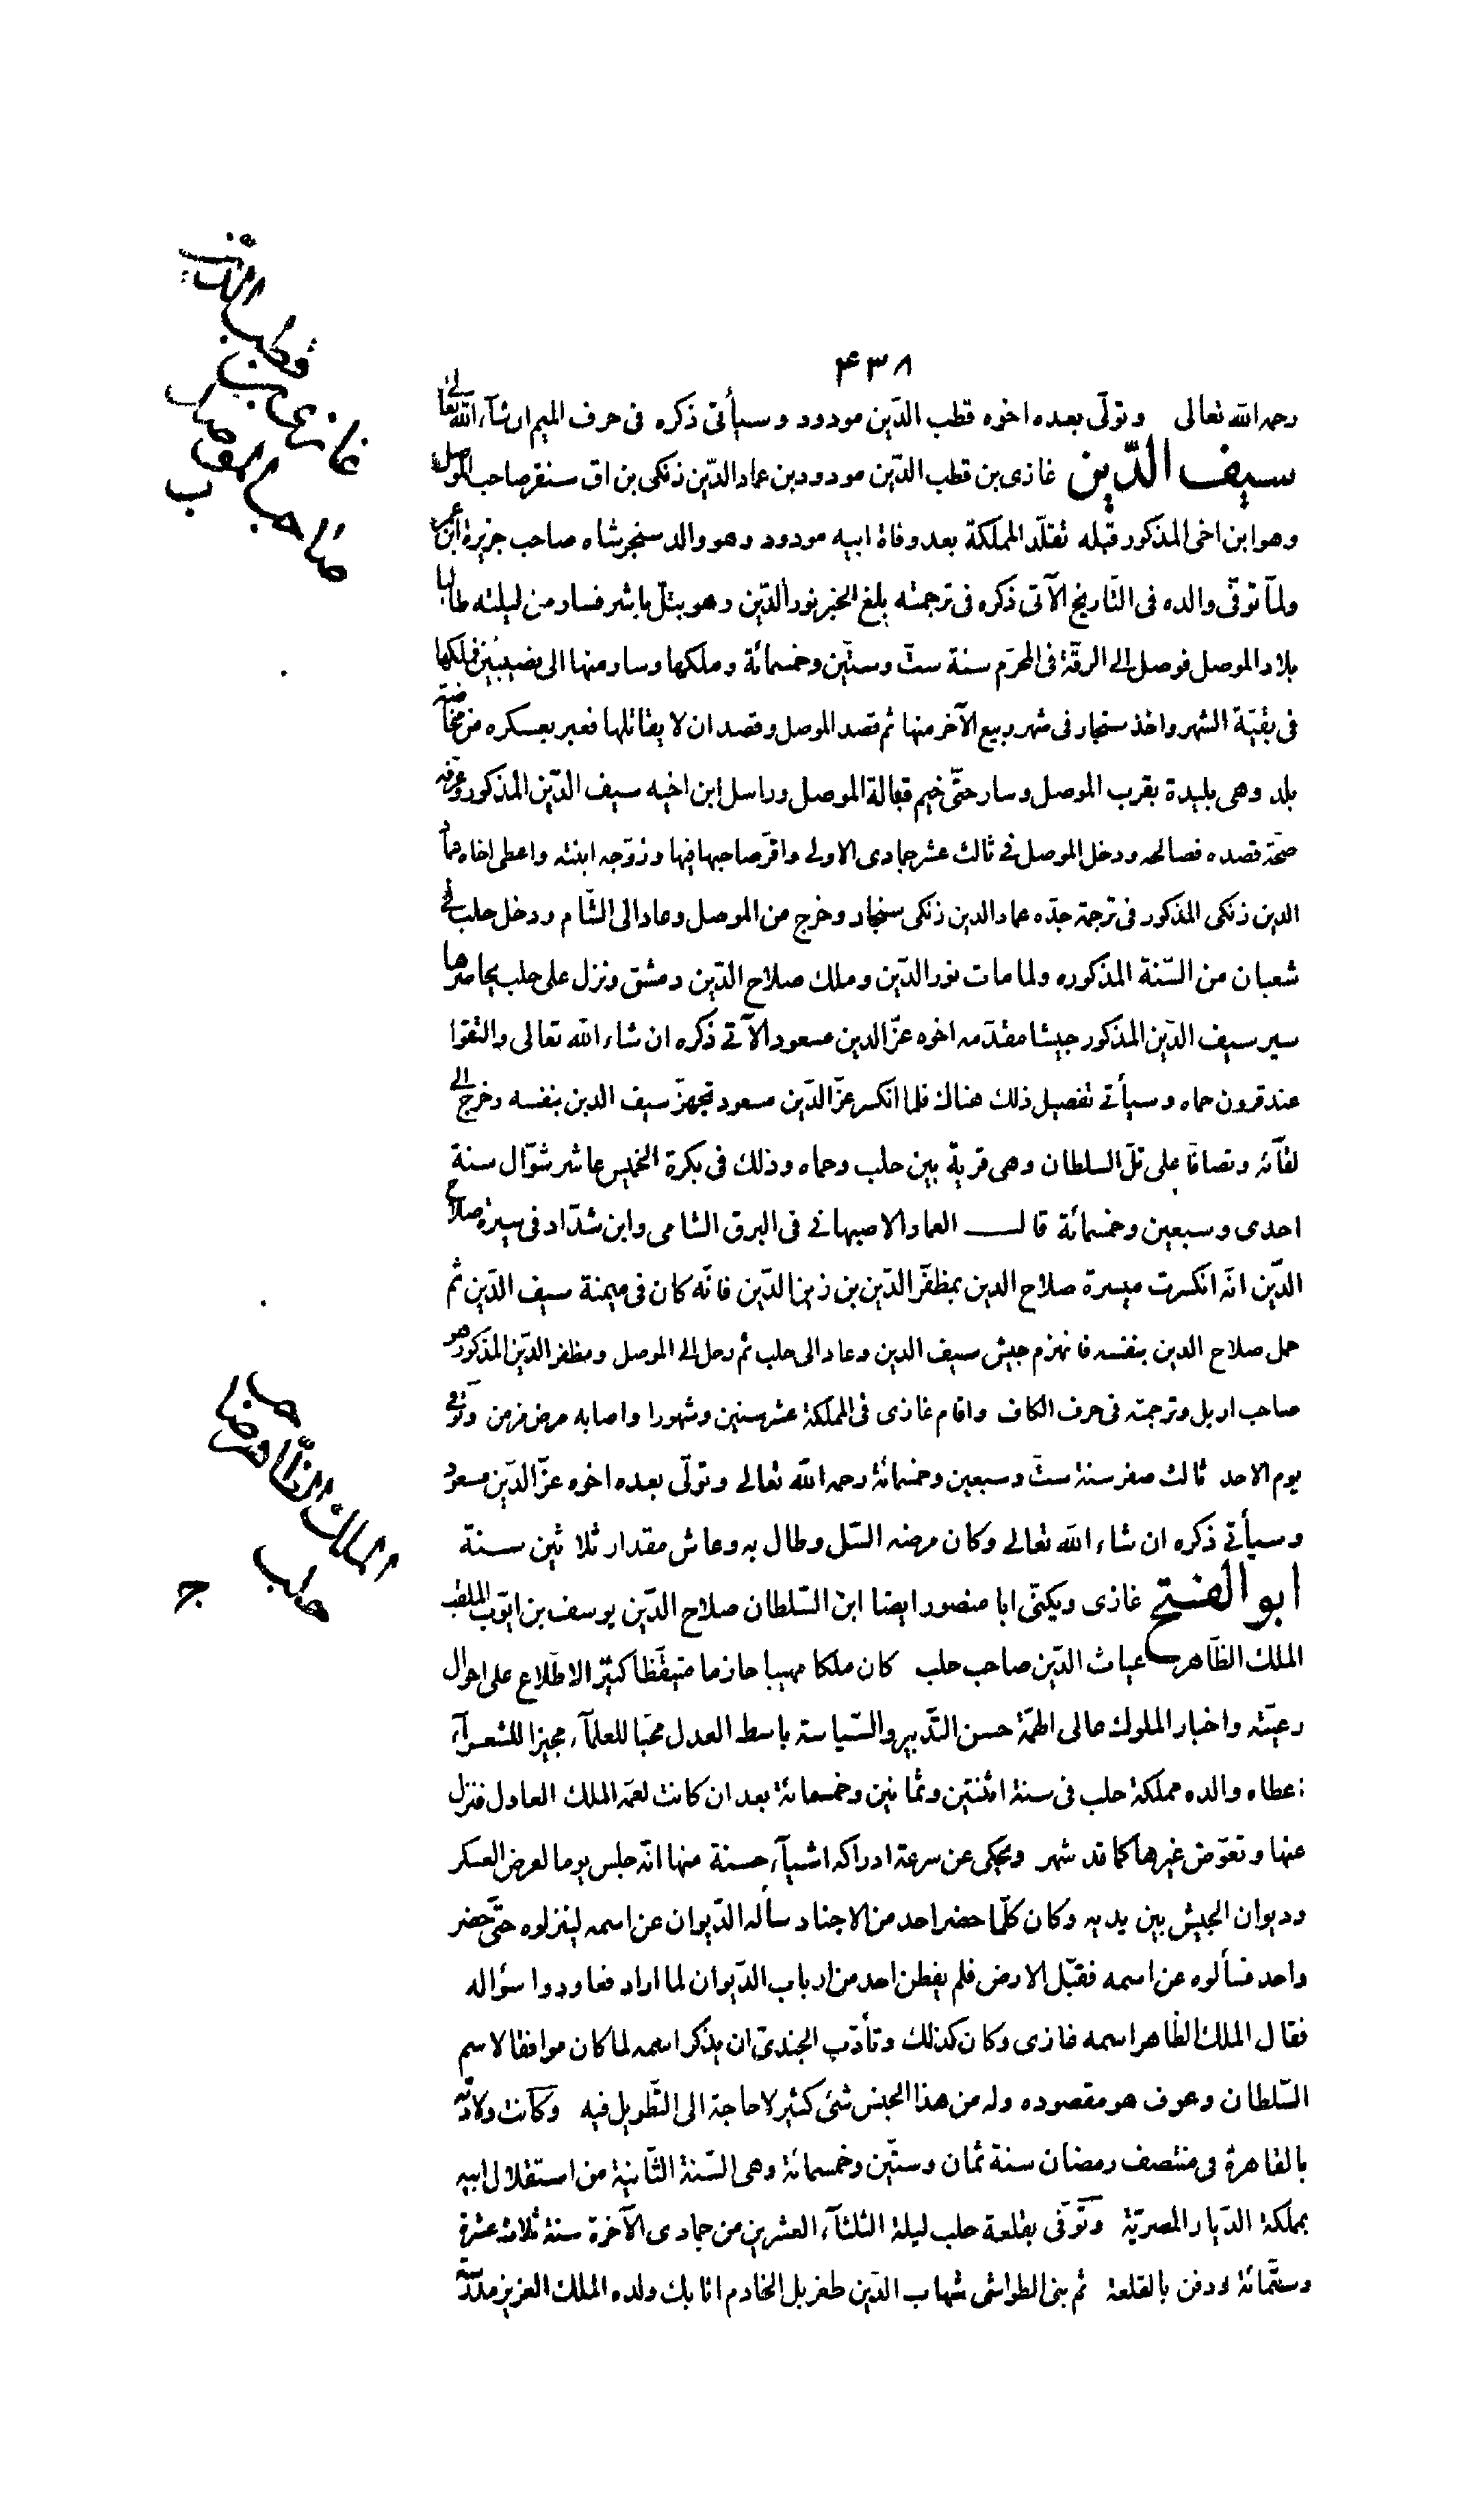 ۴۳۸
رحمه الله تعالى وتولّى بعده اخوه قطب الدّين مودود وسيأتى ذكره فى حرف الميم ان شآء الله تعالى
سيف الدّين غازى بن قطب الدّين مودود بن عماد الدّين زنكى بن اق سنقر صاحب الموصل
وهو ابن اخى المذكور قبله تقلّد المملكة بعد وفاة ابيه مودود وهو والد سنجر شاه صاحب جزيرة ابن عمر
ولمّا توفّى والده فى التّاريخ الآتى ذكره فى ترجمته بلغ الخبر نور الدّين وهو بتلّ باشر فسار من ليلته طالبا
بلاد الموصل فوصل الى الرقّة فى المحرّم سنة ستّ وستّين وخمسمائة وملكها وسار منها الى نصيبين فملكها
فى بقيّة الشهر واخذ سنجار فى شهر ربيع الآخر منها ثم قصد الموصل وقصد ان لا يقاتلها فعبر بعسكره من مخاضة
بلد وهى بليدة بقرب الموصل وسار حتّى خيم قبالة الموصل وراسل ابن اخيه سيف الدّين المذكور وعرّفه
صحّة قصده فصالحه ودخل الموصل فى ثالث عشر جمادى الاولى واقرّ صاحبها فيها وزوّجه ابنته واعطى اخاه عماد
الدين زنكى المذكور فى ترجمة جدّه عماد الدين زنكى سنجار وخرج من الموصل وعاد الى الشّام ودخل حلب فى
شعبان من السّنة المذكوره ولما مات نور الدّين وملك صلاح الدّين دمشق ونزل على حلب يحاصرها
سير سيف الدّين المذكور جيشا مقدّمه اخوه عزّ الدين مسعود الآتى ذكره ان شاء الله تعالى والتقوا
عند قرون حماه وسيأتى تفصيل ذلك هناك فلما انكسر عزّ الدّين مسعود تجهزّ سيف الدين بنفسه وخرج الى
لقآئه وتصافّا على تلّ السلطان وهى قرية بين حلب وحماه وذلك فى بكرة الخميس عاشر شوّال سنة
احدى وسبعين وخمسمائة قال العماد الاصبهانى فى البرق الشامى وابن شدّاد فى سيرة صلاح
الدّين انه انكسرت ميسرة صلاح الدين بمظفّر الدّين بن زين الدّين فانّه كان فى ميمنة سيف الدّين ثم
حمل صلاح الدين بنفسه فانهزم جيش سيف الدين وعاد الى حلب ثم رحل الى الموصل ومظفر الدّين المذكور هو
صاحب اربل وترجمته فى حرف الكاف واقام غازى فى المملكة عشر سنين وشهورا واصابه مرض مزمن وتوفى
يوم الاحد ثالث صفر سنة ستّ وسبعين وخمسمائة رحمه الله تعالى وتولّى بعده اخوه عزّ الدّين مسعود
وسيأتى ذكره ان شاء الله تعالى وكان مرضه السّل وطال به وعاش مقدار ثلاثين سنة
ابو الفتح غازى ويكنّى ابا منصور ايضا ابن السّلطان صلاح الدّين يوسف بن ايّوب الملقب
الملك الظّاهر غياث الدّين صاحب حلب كان ملكا مهيبا حازما متيقّظا كثير الاطّلاع على احوال
رعيّته واخبار الملوك عالى الهمّة حسن التّدبير والسّياسة باسط العدل محبّا للعلمآء مجيزا للشعرآء
اعطاه والده مملكة حلب فى سنة اثنتين وثمانين وخمسمائة بعد ان كانت لعمّه الملك العادل فنزل
عنها وتعوّض غيرها كما قد شهر ويحكى عن سرعة ادراكه اشيآء حسنة منها انّه جلس يوما لعرض العسكر
وديوان الجيش بين يديه وكان كلّما حضر احد من الاجناد سأله الدّيوان عن اسمه لينزلوه حتّى حضر
واحد فسألوه عن اسمه فقبّل الارض فلم يفطن احد من ارباب الدّيوان لما اراد فعاودوا سؤاله
فقال الملك الظاهر اسمه غازى وكان كذلك وتأدّب الجندىّ ان يذكر اسمه لما كان موافقا لاسم
السّلطان وعرف هو مقصوده وله من هذا الجنس شئ كثير لا حاجة الى التّطويل فيه وكانت ولادته
بالقاهرة فى منتصف رمضان سنة ثمان وستّين وخمسمائة وهى السّنة الثّانية من استقلال ابيه
بمملكة الدّيار المصريّة وتوفّى بقلعة حلب ليلة الثلثآء العشرين من جمادى الآخرة سنة ثلاث عشرة
وستّمائة ودفن بالقلعة ثم بنى الطواشى شهاب الدّين طغربل الخادم اتابك ولده الملك العزيز مدرسة
غازى بن قطب الدّين
صاحب الموصل
ب
الملك الظّاهر صاحب
حلب
ج